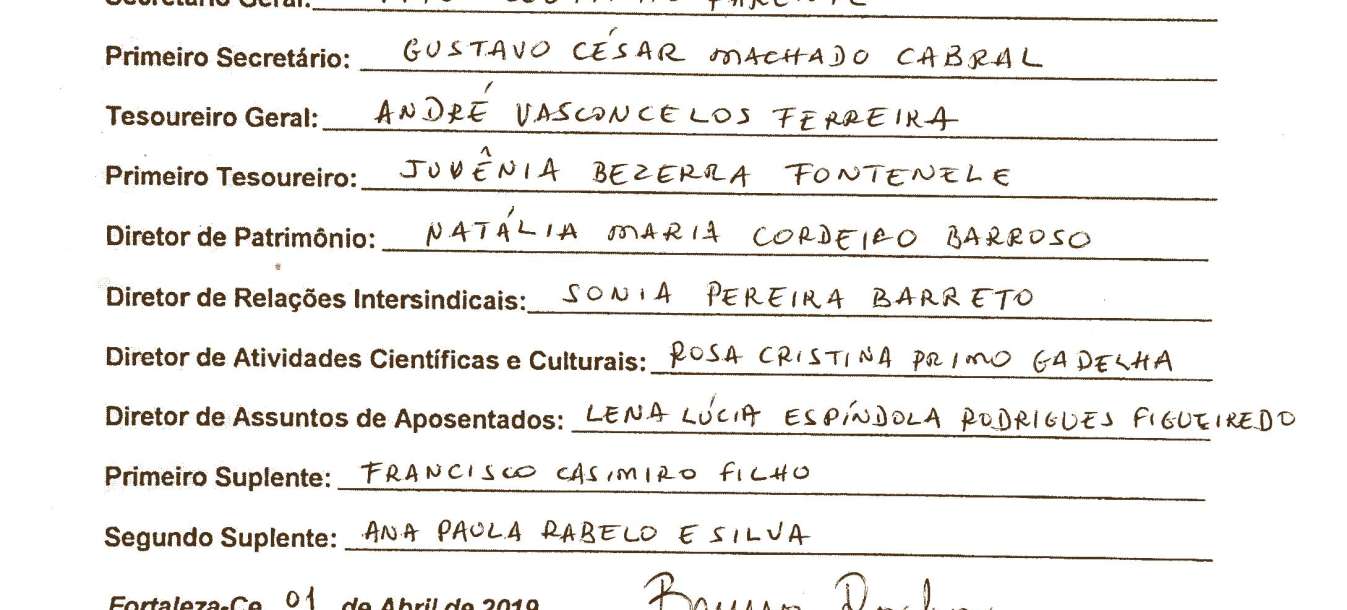 Secretário Geral:
Primeiro Secretário: GUSTAVO CÉSAR MACHADO CABRAL
Tesoureiro Geral: ANDRÉ VASCONCELOS FERREIRA
Primeiro Tesoureiro: JUVÊNIA BEZERRA FONTENELE
Diretor de Patrimônio: NATÁLIA MARIA CORDEIRO BARROSO
Diretor de Relações Intersindicais: SONIA PEREIRA BARRETO
Diretor de Atividades Científicas e Culturais: ROSA CRISTINA PRIMO GADELHA
Diretor de Assuntos de Aposentados: LENA LÚCIA ESPÍNDOLA RODRIGUES FIGUEIREDO
Primeiro Suplente: FRANCISCO CASIMIRO FILHO
Segundo Suplente: ANA PAULA RABELO E SILVA
Fortaleza-Ce, 01 de Abril de 2019